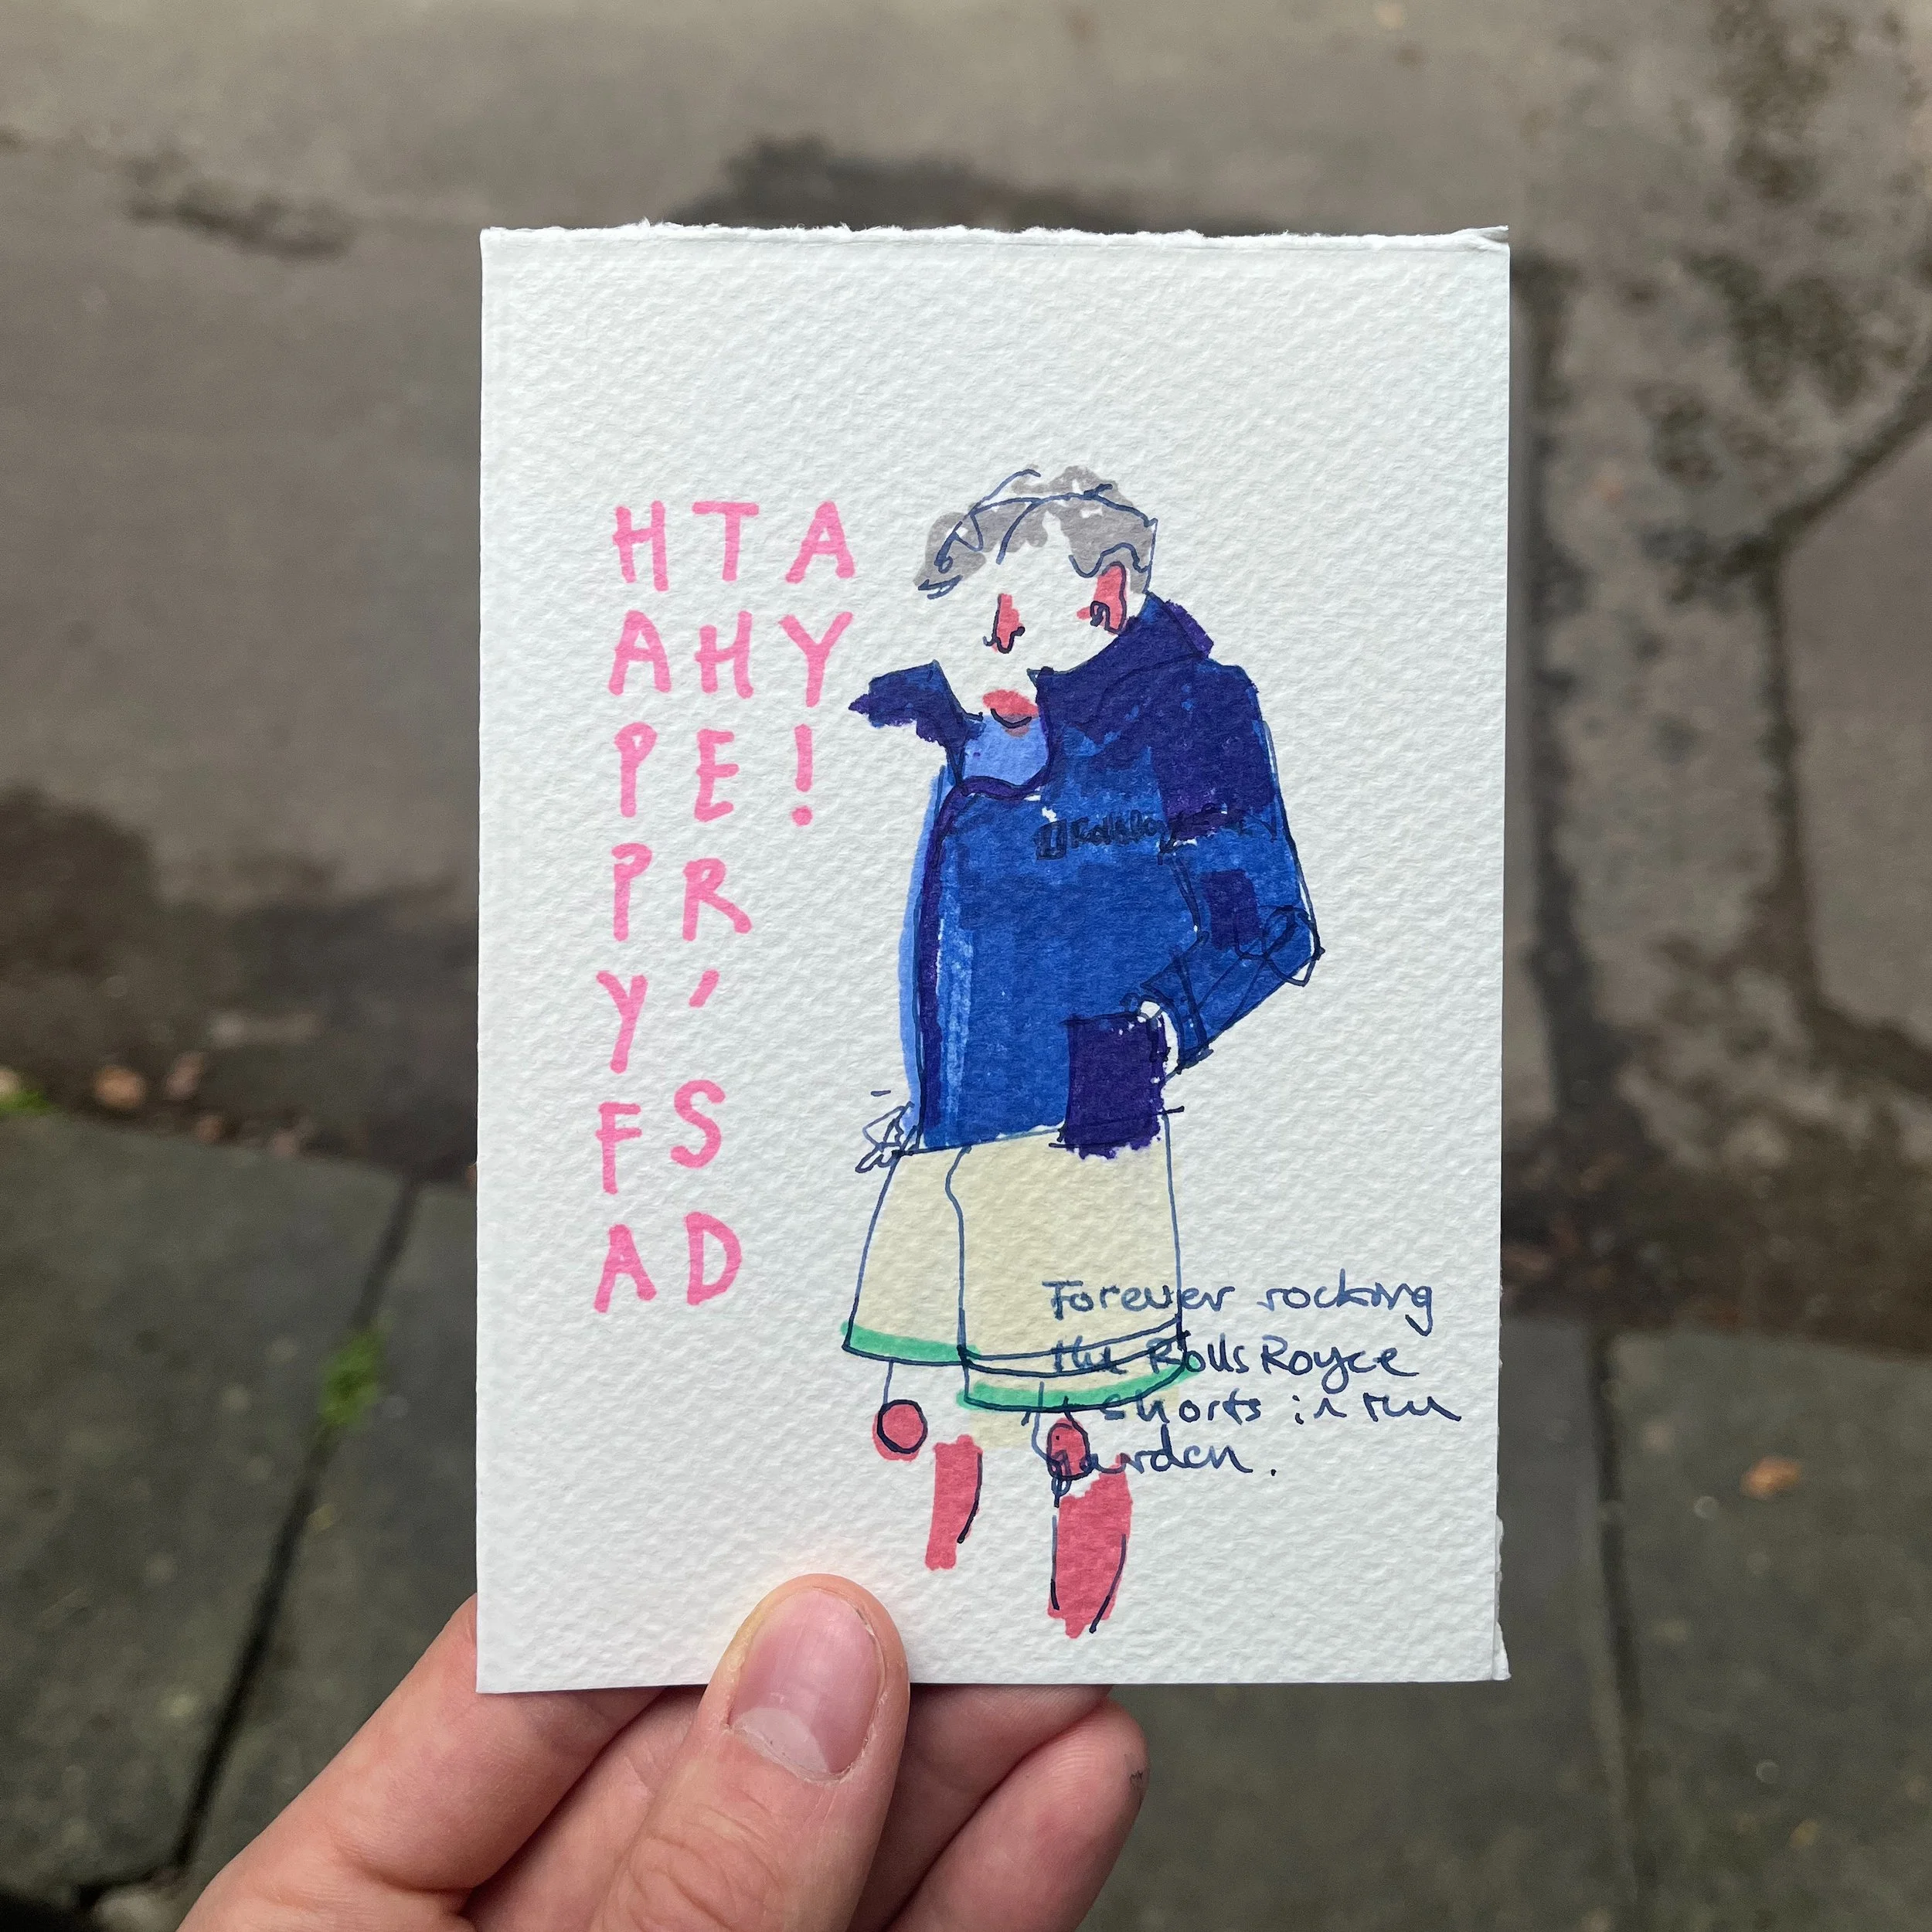 HAPPY FA
THER'S D
AY!
Forever rocking
the Rolls Royce
shorts in the
garden.